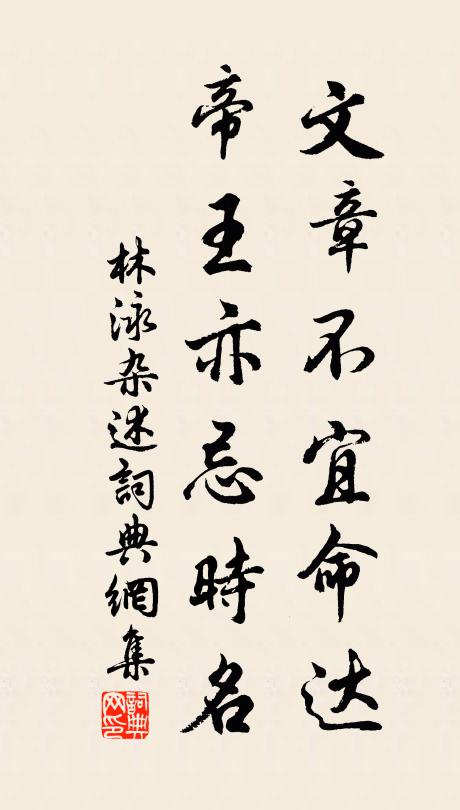 文章不宜命达
帝王亦忌時名
林泳杂述詞典網集
詞典网印